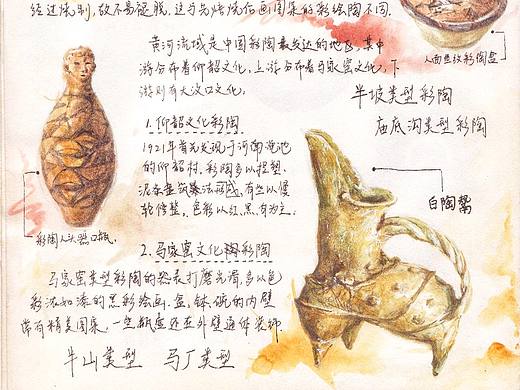 经过烧制,故不易脱脱,这与先烧烧后画图案的彩绘陶不同.
人面鱼纹彩陶盆
黄河流域是中国彩陶最发达的地区,其中
游分布着仰韶文化,上游分布着马家窑文化,下
游则有大汶口文化.
半坡类型彩陶
庙底沟类型彩陶
1.仰韶文化彩陶
1921年首先发现于河南渑池
的仰韶村,彩陶多以捏塑、
泥条盘筑
轮修整,色彩以红、黑、有为主.
白陶鬶
彩陶人头器口瓶.
2.马家窑文化陶彩陶
马家窑类型彩陶的器表打磨光滑,多以色
彩浓如漆的黑彩绘画,盆、钵、碗的内壁
常有精美图案,一些瓶壶还在外壁通体装饰.
半山类型 马厂类型